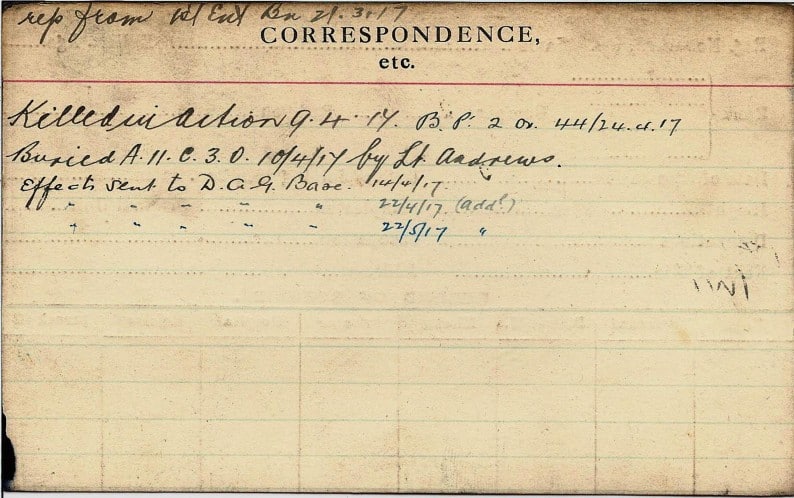 rep from 1st Ent Bn 21.3.17
CORRESPONDENCE,
etc.
Killed in action 9.4.17. B.P. 2 Or. 44/24.4.17
Buried A.11.C.3.0. 10/4/17 by Lt. Andrews.
Effects sent to D.A.G. Base. 14/4/17.
" " " " " 22/4/17 (addl)
" " " " " 22/5/17 "